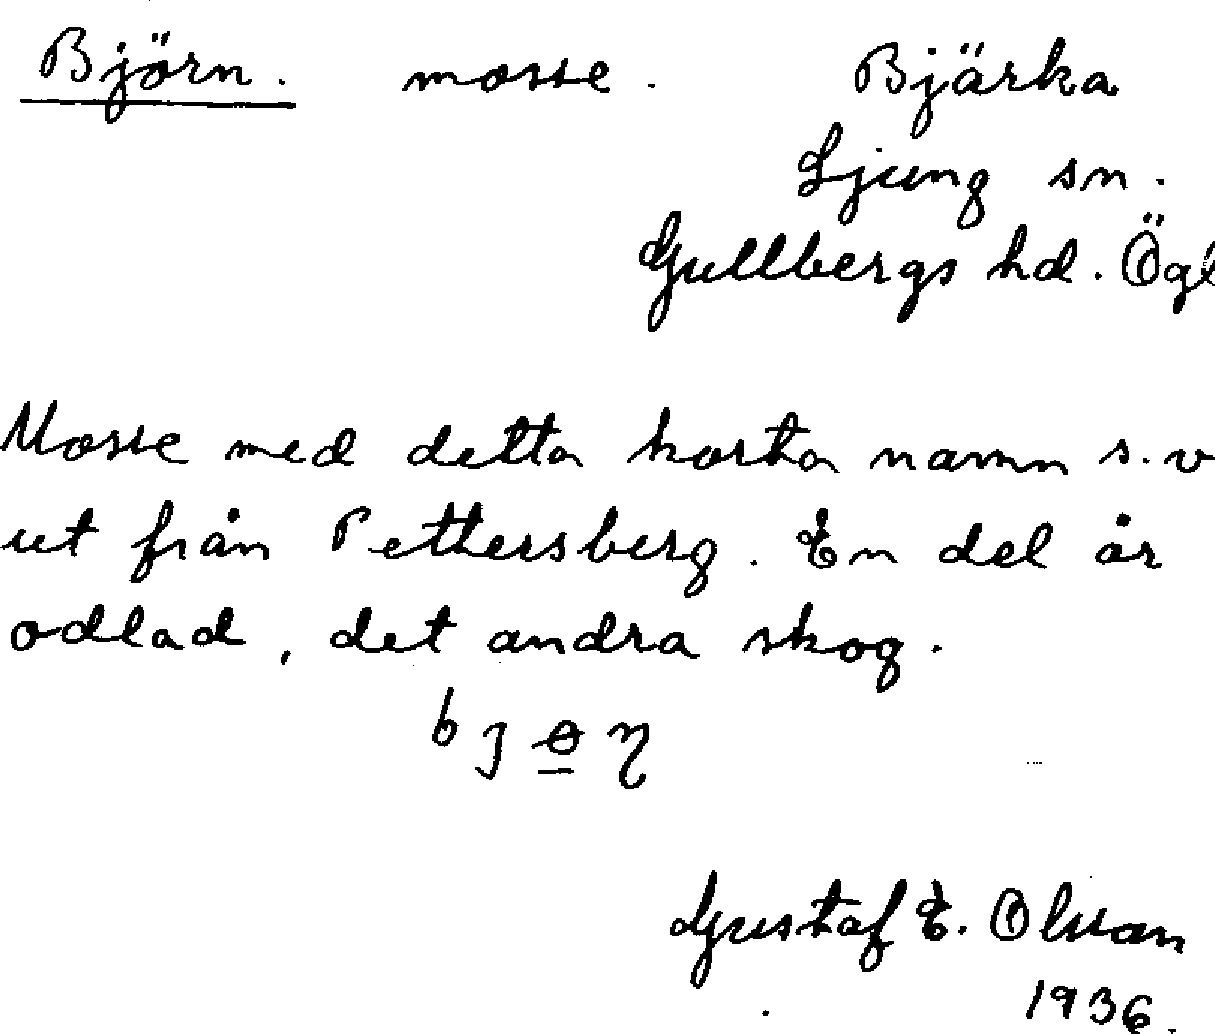 Björn. mosse. Bjärka
Ljung sn.
Gullbergs hd. Ögl
Mosse med detta korta namn s.v
ut från Pettersberg. En del är
odlad, det andra skog.
Gustaf E. Olsson
1936.